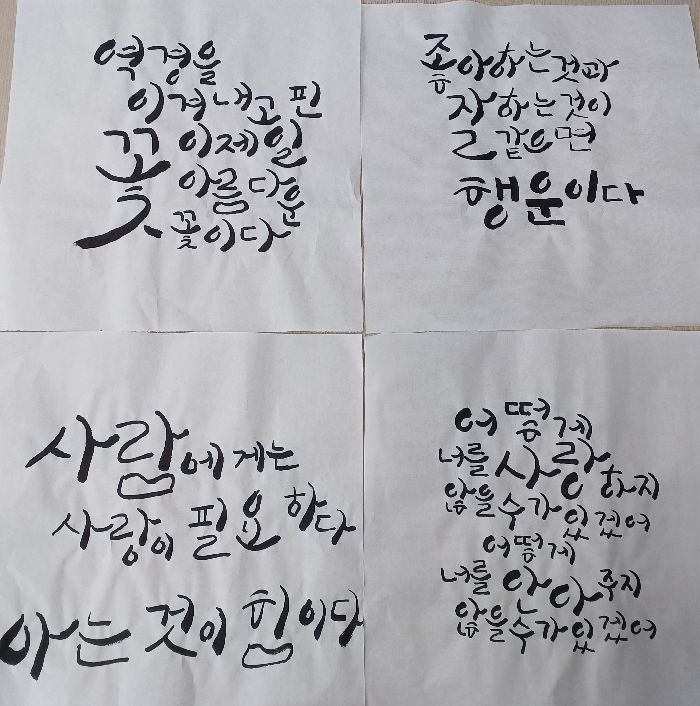 역경을
이겨내고 핀
꽃 이제일
아름다운
꽃이다
좋아하는것과
잘하는것이
같으면
행운이다
사람에게는
사랑이 필요하다
아는 것이 힘이다
어떻게
너를 사랑하지
않을수가있겠어
어떻게
너를 안아주지
않을수가있겠어